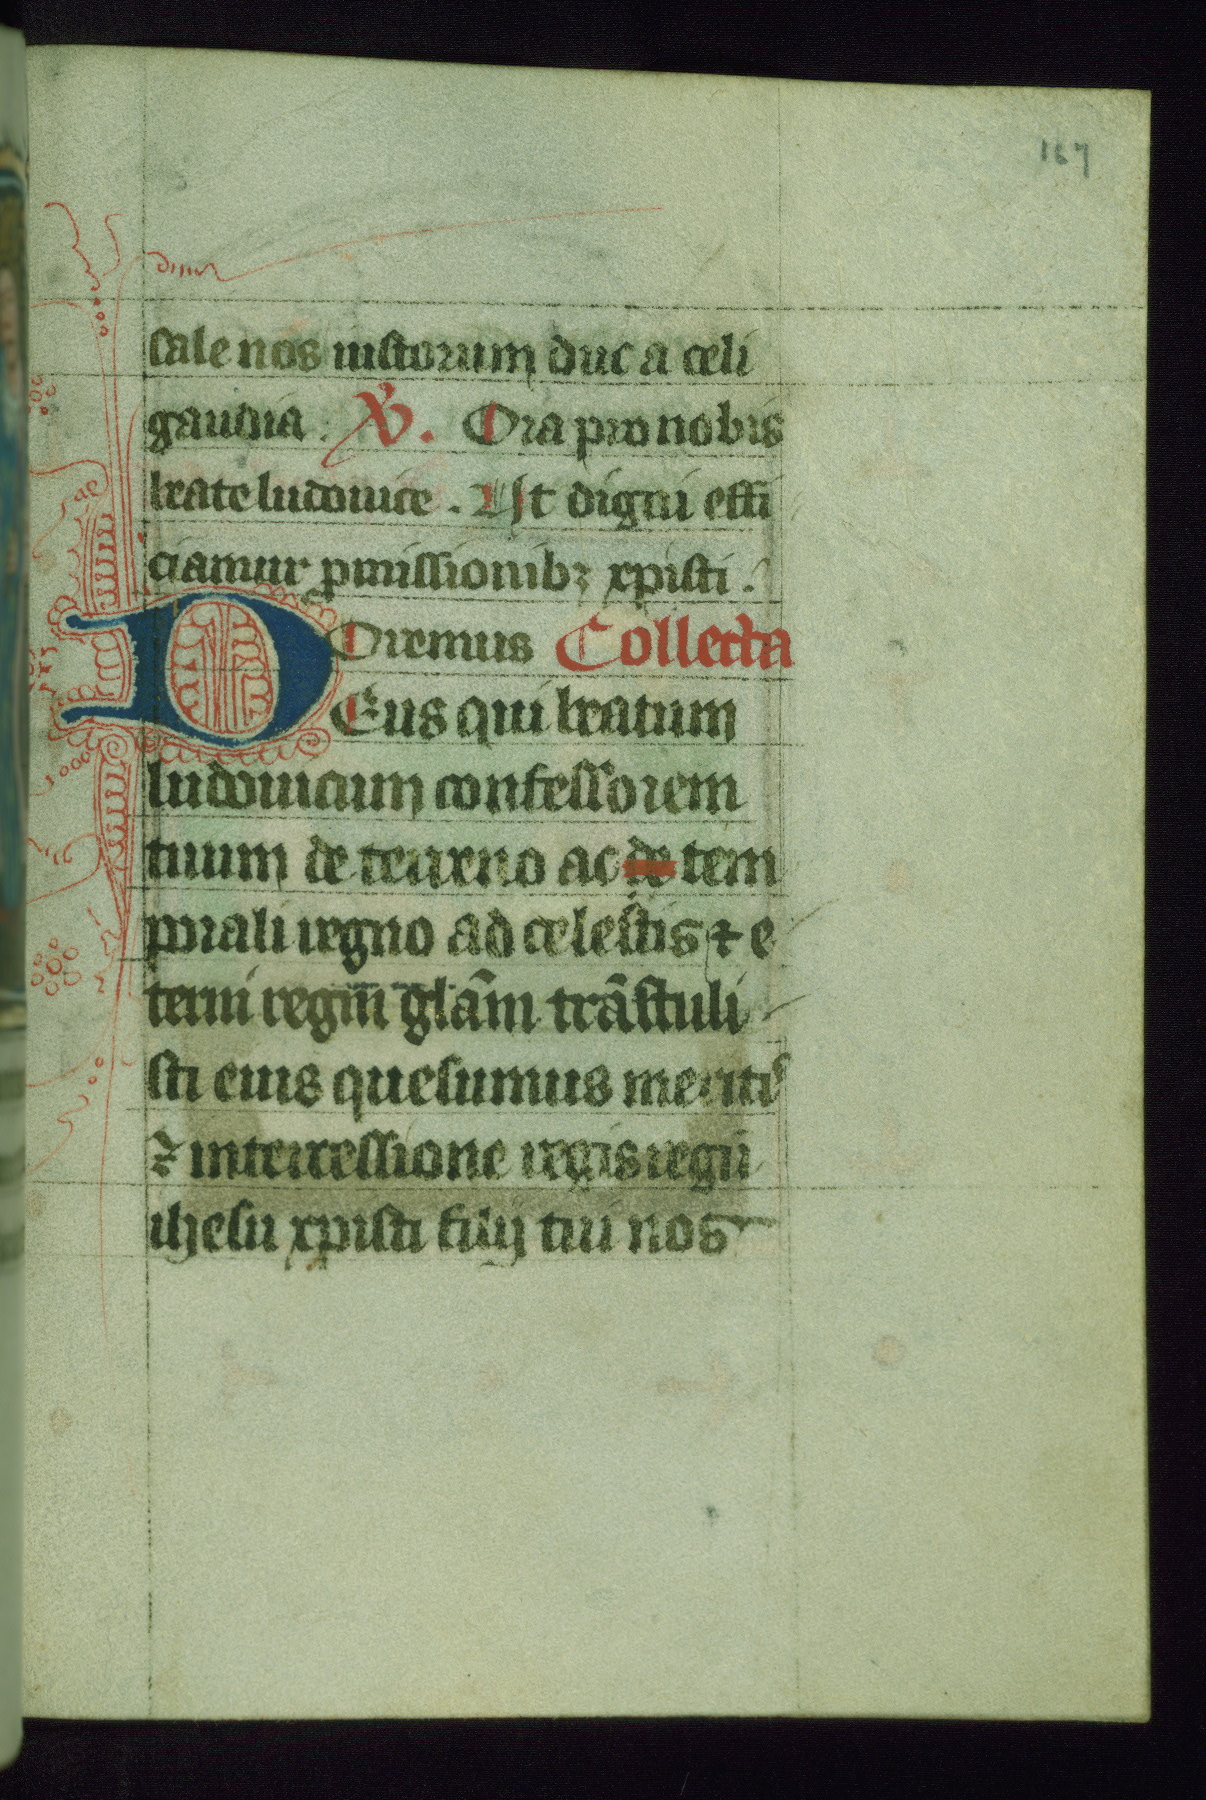 167
sale nos iustorum duc a celi
gaudia. V̉. Ora pro nobis
beate ludouice. Ut digni effi
ciamur pmissionibꝫ xpisti.
Oremus Collecta
DEus qui beatum
ludouicum confessorem
tuum de terreno ac de tem
porali regno ad celestis & e
terni regni gl̄am trāstuli
sti eius quesumus meritis
⁊ intercessione regis regū
ihesu xpisti filij tui nos